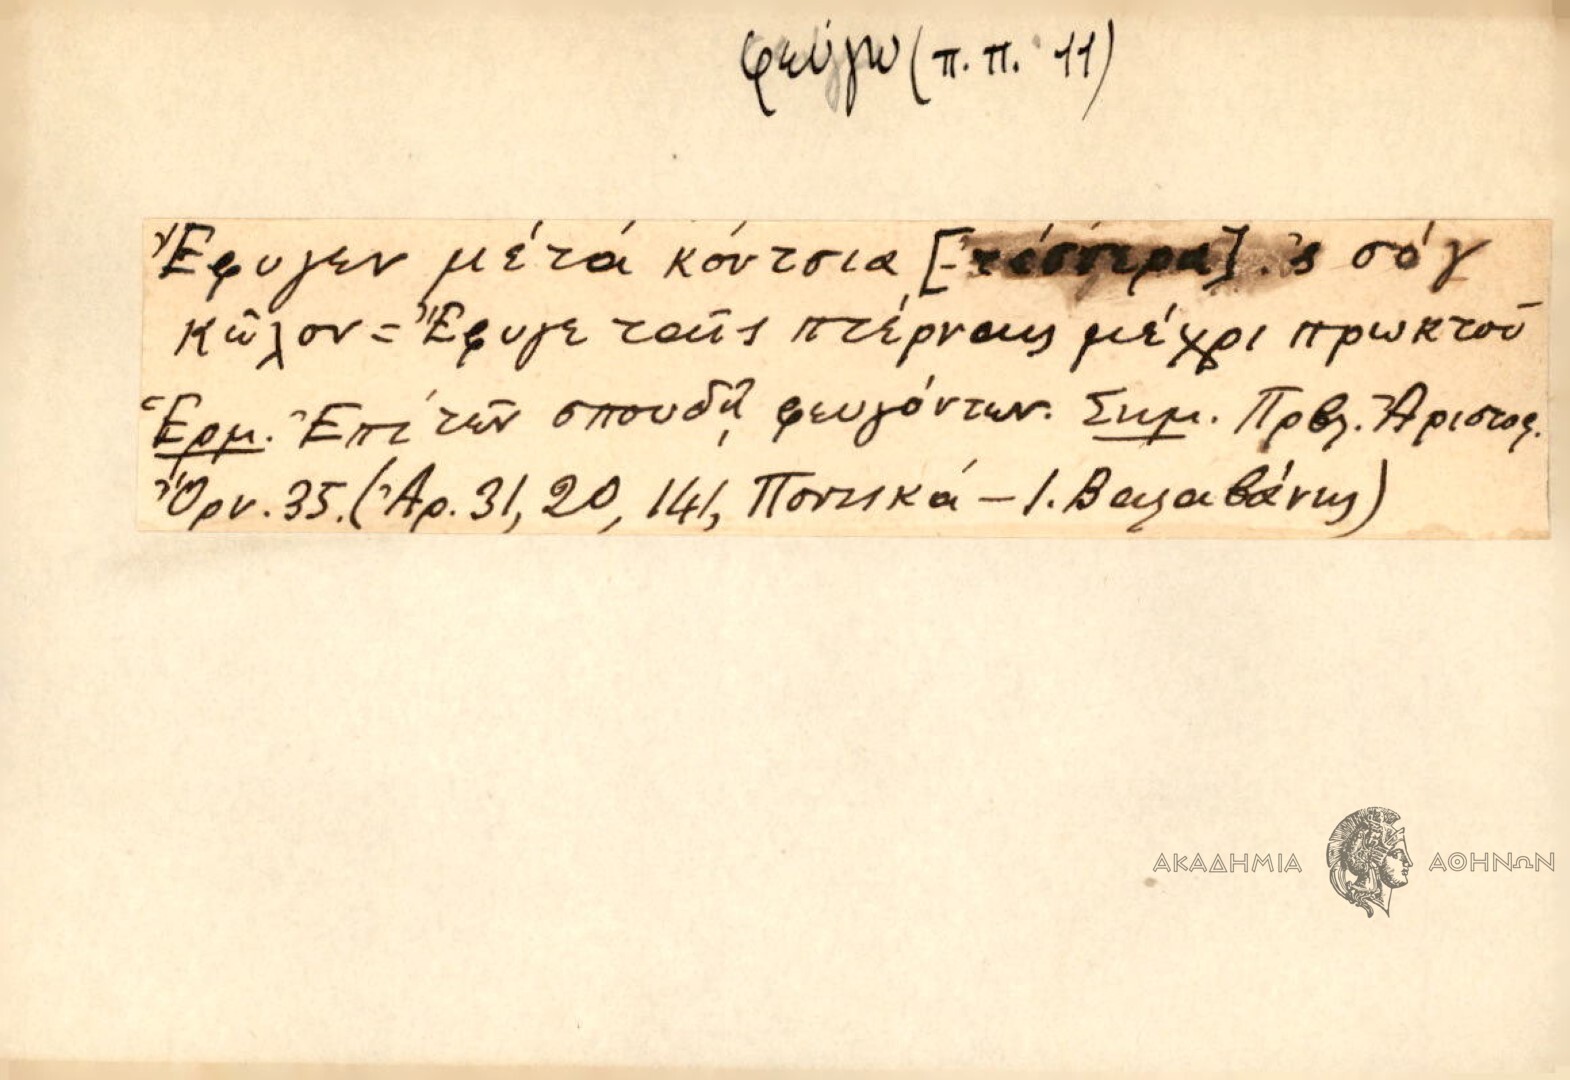 φεύγω (π. π. 11)
Ἔφυγεν μέ τά κόντσια [-τέσσερα] 'ς σόγ
κῶλον = Ἔφυγε ταῖς πτέρναις μέχρι πρωκτοῦ
Ἑρμ. Ἐπί τῶν σπουδῇ φευγόντων. Σημ. Πρβλ. Ἀριστοφ.
Ὄρν. 35. (Ἀρ. 31, 20, 141, Ποντικά – Ι. Βαλαβάνης)
ΑΚΑΔΗΜΙΑ ΑΘΗΝΩΝ